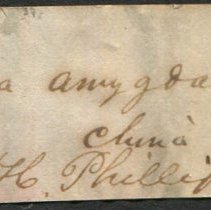 a amygda
china
H. Phillip